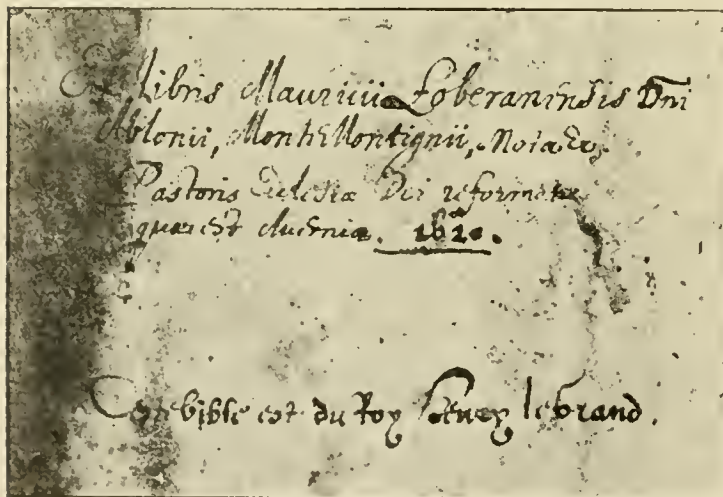 Ex libris Mauricii Loberaninsis Dni
Ablonii, Montis Montignii,
Pastoris Eclesiæ Dei reformatæ
quæ est 1620.
Ceste bible est du Roy Henry le Grand.